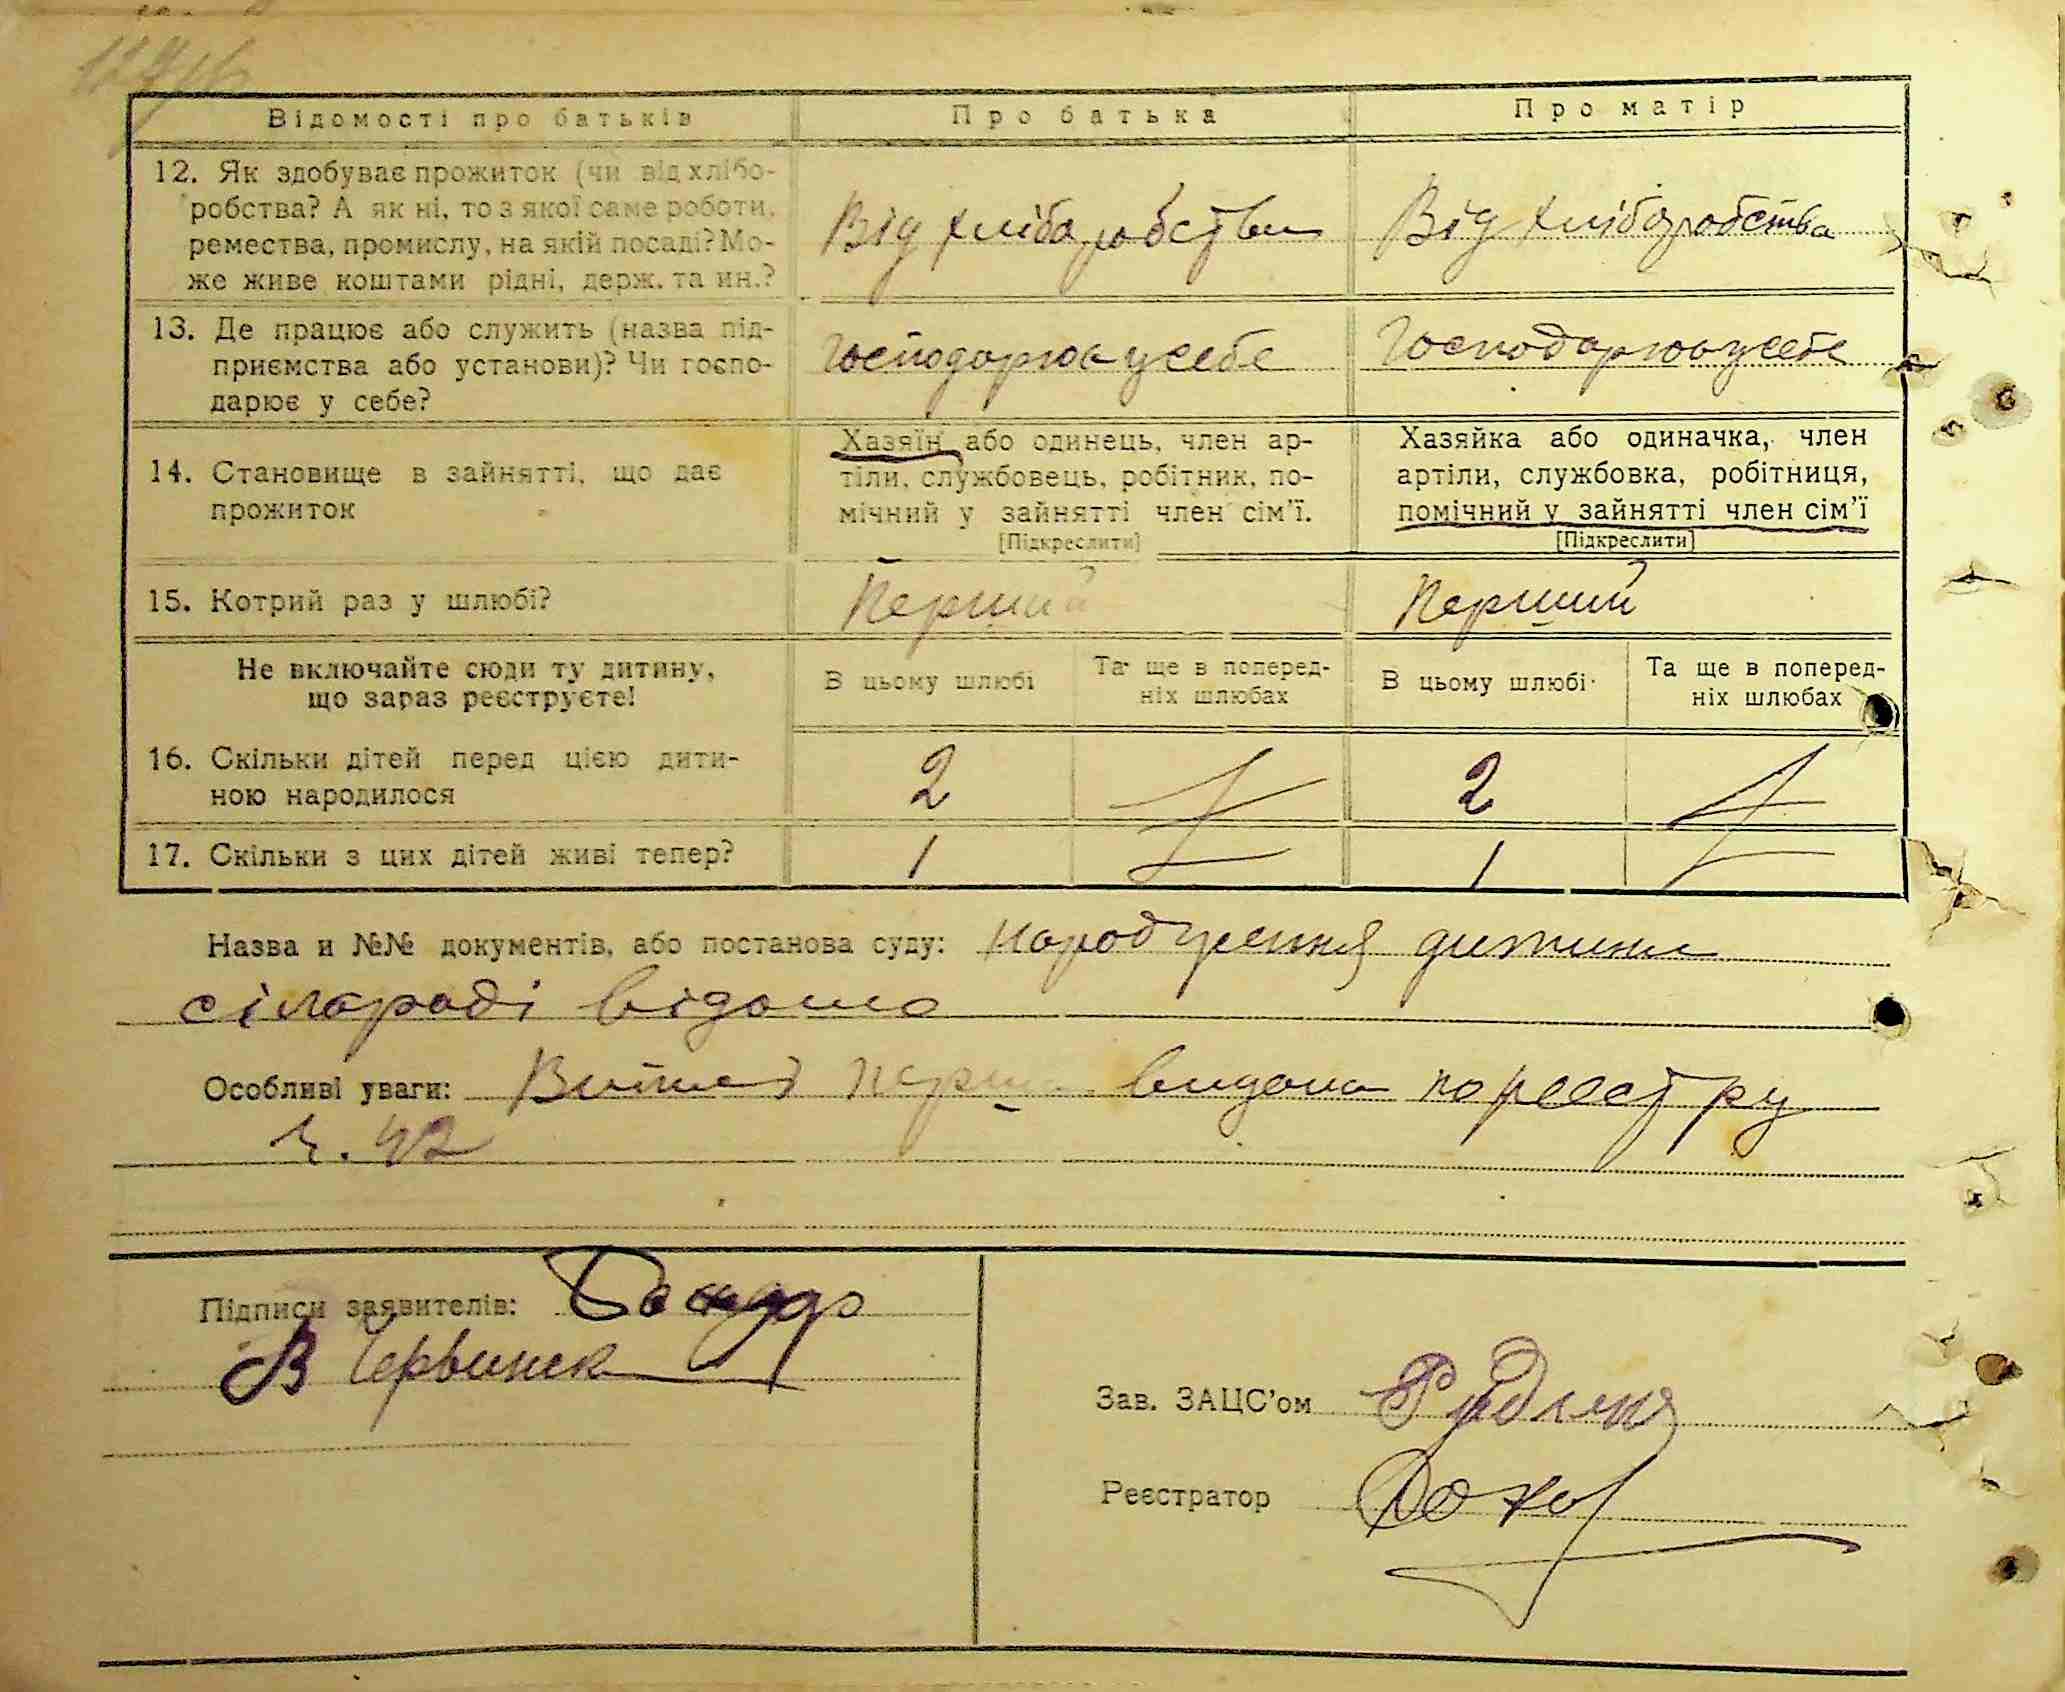 Відомості про батьків
Про батька
Про матір
12. Як здобуває прожиток (чи від хлібо-
робства? А як ні, то з якої саме роботи,
ремества, промислу, на якій посаді? Мо-
же живе коштами рідні, держ. та ин.?
Від хліборобства
Від хліборобства
13. Де працює або служить (назва під-
приємства або установи)? Чи госпо-
дарює у себе?
Господарює у себе
Господарює у себе
14. Становище в зайнятті, що дає
прожиток
Хазяїн або одинець, член ар-
тіли, службовець, робітник, по-
мічний у зайнятті член сім'ї.
[Підкреслити]
Хазяйка або одиначка, член
артіли, службовка, робітниця,
помічний у зайнятті член сім'ї
[Підкреслити]
15. Котрий раз у шлюбі?
Перший
Перший
Не включайте сюди ту дитину,
що зараз реєструєте!
В цьому шлюбі
Та ще в поперед-
ніх шлюбах
В цьому шлюбі
Та ще в поперед-
ніх шлюбах
16. Скільки дітей перед цією дити-
ною народилося
2
2
17. Скільки з цих дітей живі тепер?
1
1
Назва и №№ документів, або постанова суду: народження дитини
сілараді відомо
Особливі уваги: видана по реєстру
ч. 42
Підписи заявителів: Бондар
В Червинск
Зав. ЗАЦС'ом
Реєстратор